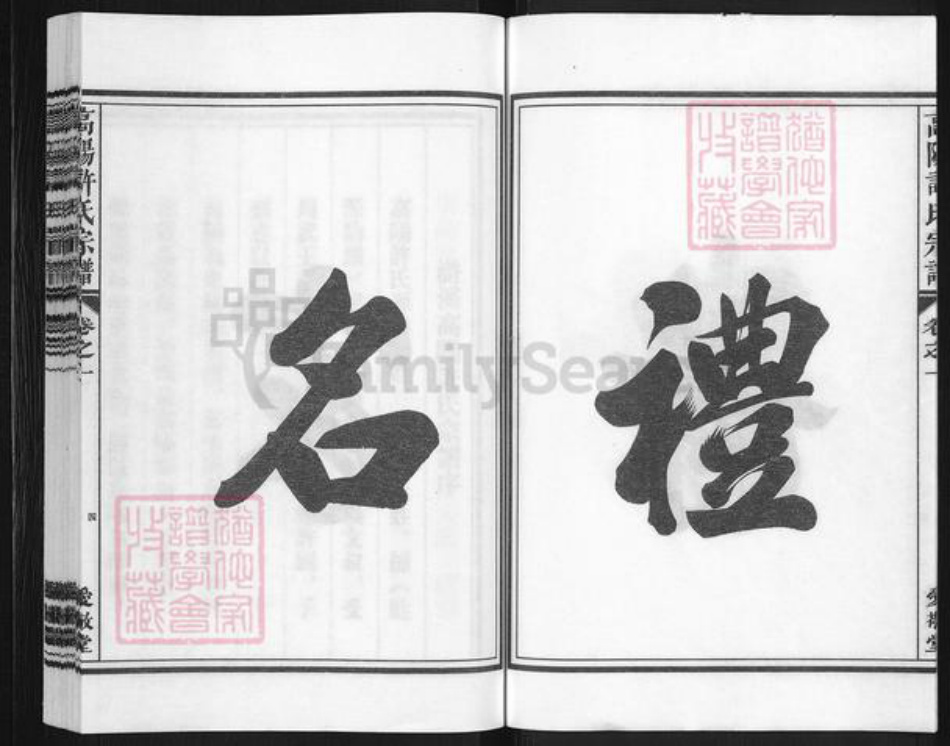 禮
高陽許氏宗譜
卷之一
愛敬堂
名
高陽許氏宗譜
卷之一
四
愛敬堂
譜學會
收藏
譜學會
收藏
FamilySearch